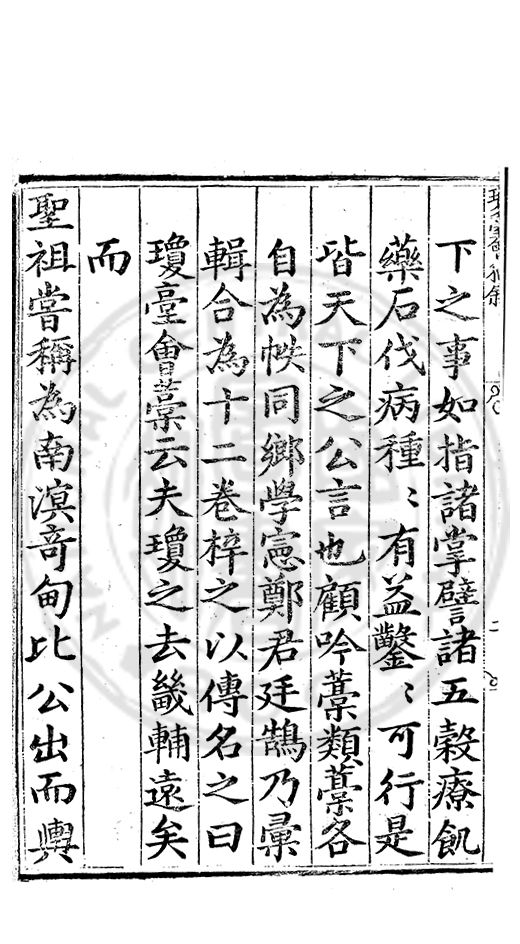 下之事如指諸掌譬諸五穀療飢
藥石伐病種〻有益鑿〻可行是
皆天下之公言也顧吟藁類藁各
自為帙同鄉學憲鄭君廷鵠乃彙
輯合為十二卷梓之以傳名之曰
瓊臺會藁云夫瓊之去畿輔遠矣
而
聖祖嘗稱為南溟奇甸比公出而輿